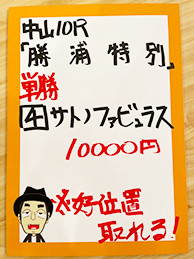 中山10R
「勝浦特別」
単勝
④サトノファビュラス
10000円
※好位置
取れる!